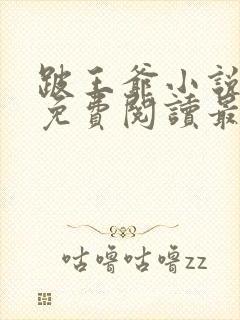 跛王爺小說
免費閱讀最
咕嚕咕嚕zz